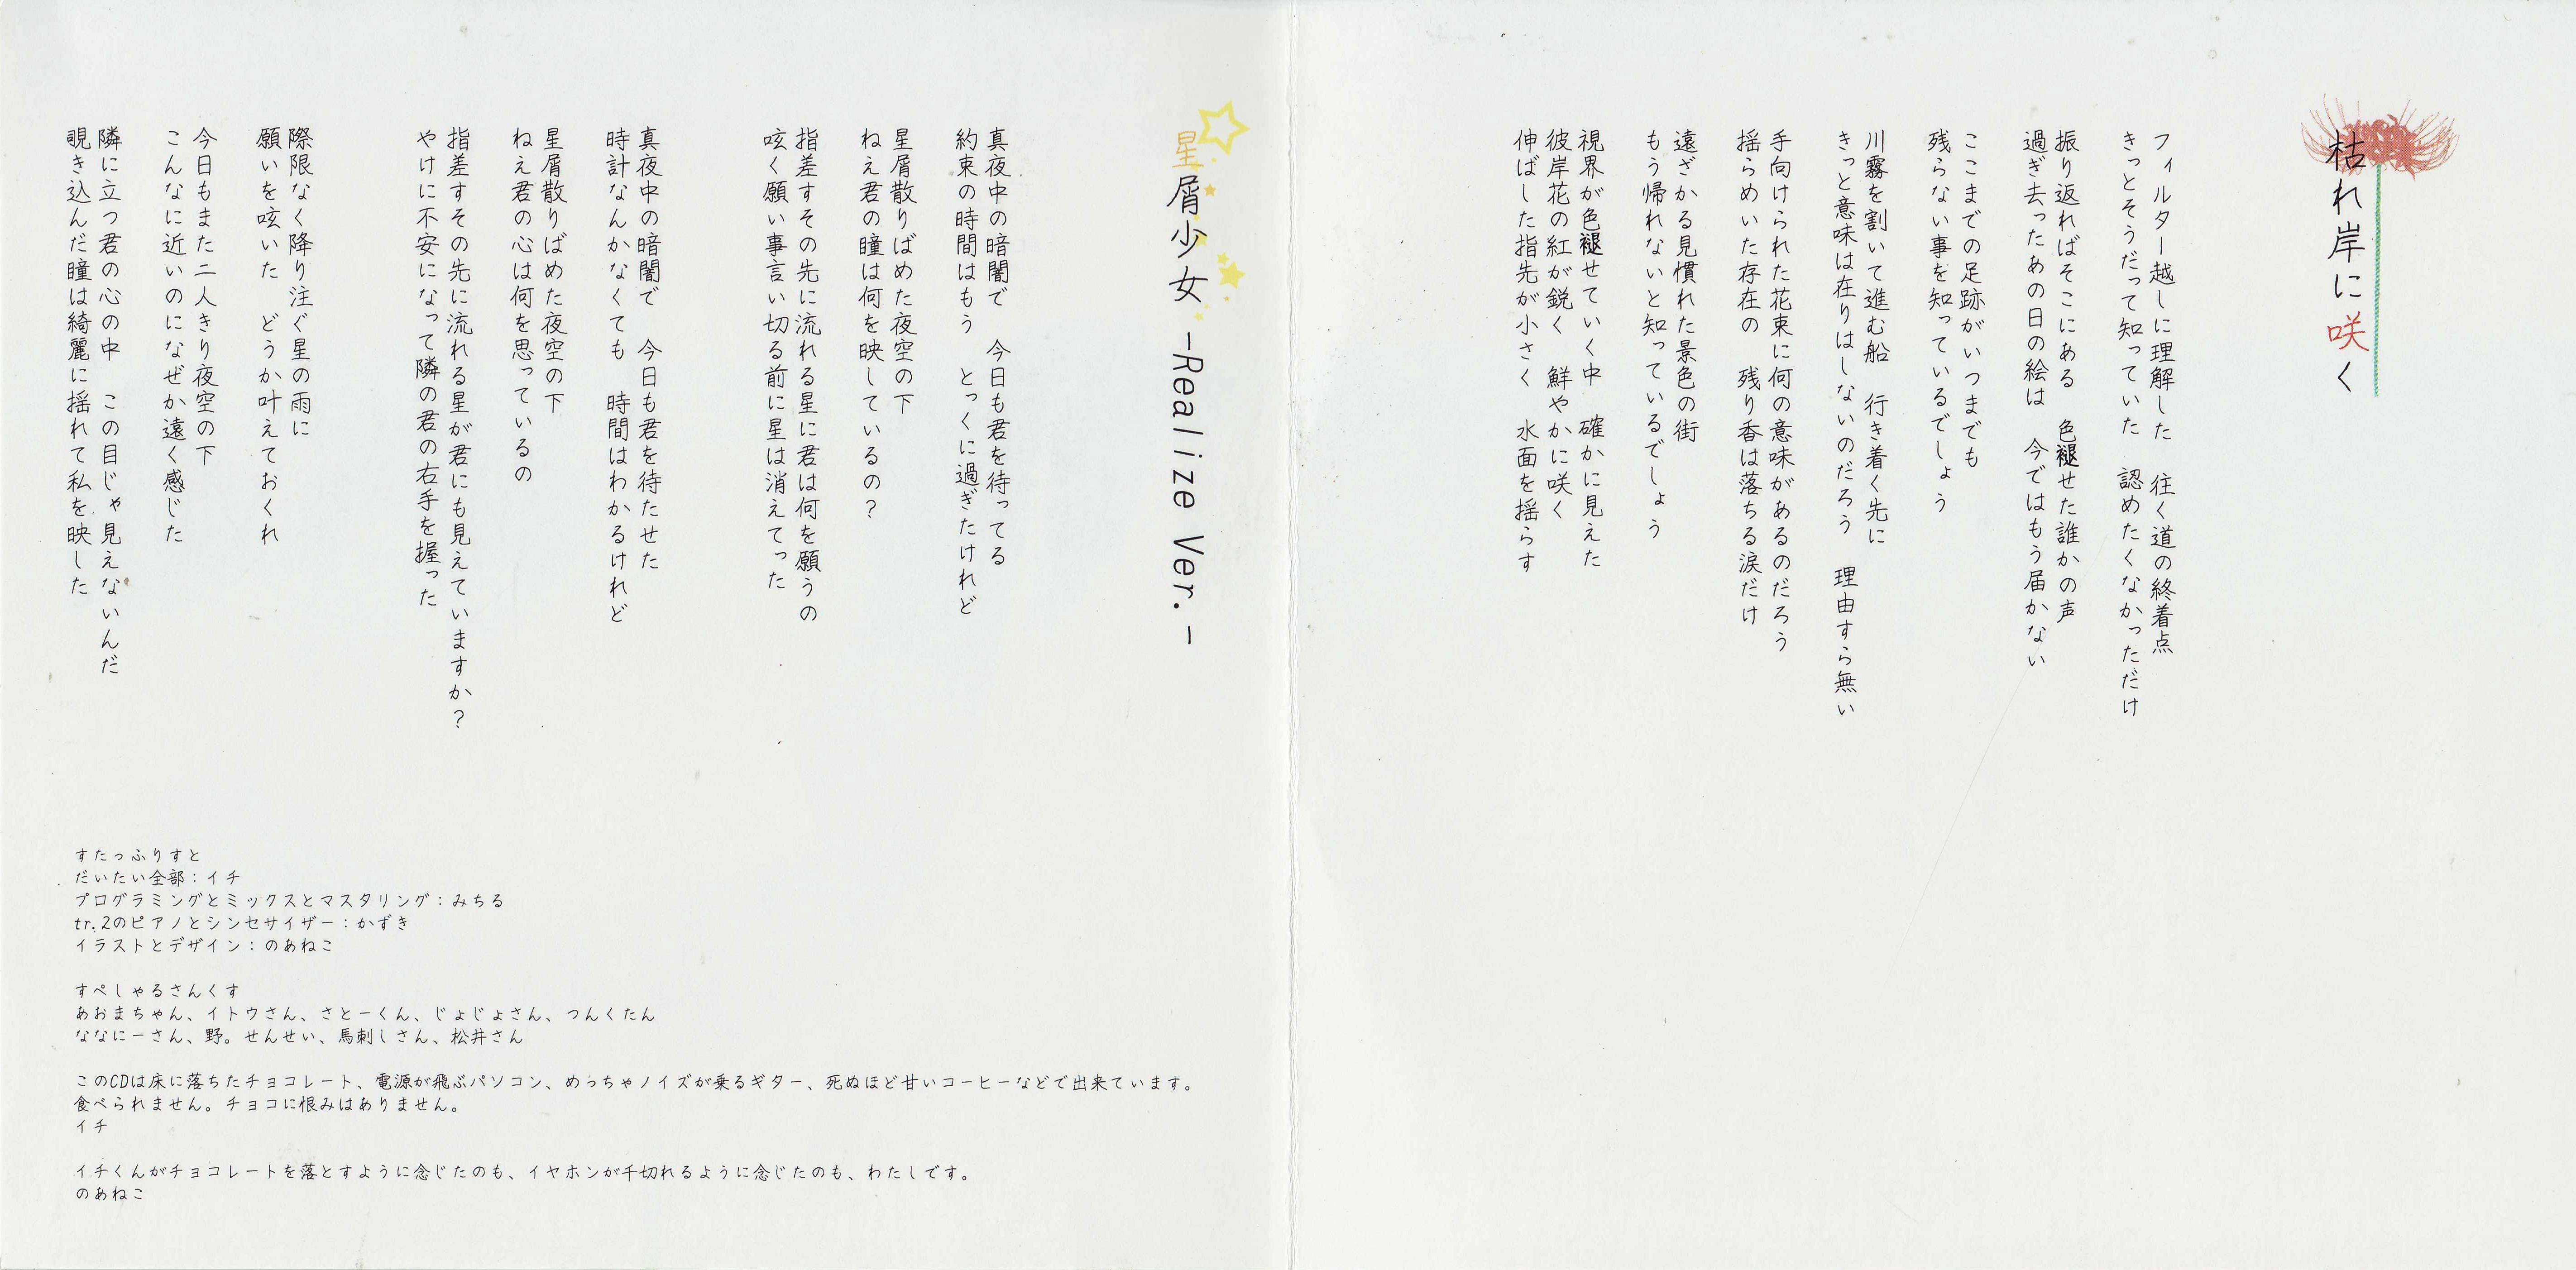 枯れ岸に咲く
フィルター越しに理解した　往く道の終着点
きっとそうだって知っていた　認めたくなかっただけ
振り返ればそこにある　色褪せた誰かの声
過ぎ去ったあの日の絵は　今ではもう届かない
ここまでの足跡がいつまでも
残らない事を知っているでしょう
川霧を割いて進む船　行き着く先に
きっと意味は在りはしないのだろう　理由すら無い
手向けられた花束に何の意味があるのだろう
揺らめいた存在の　残り香は落ちる涙だけ
遠ざかる見慣れた景色の街
もう帰れないと知っているでしょう
視界が色褪せていく中　確かに見えた
彼岸花の紅が鋭く　鮮やかに咲く
伸ばした指先が小さく　水面を揺らす
星屑少女 -Realize Ver.-
真夜中の暗闇で　今日も君を待ってる
約束の時間はもう　とっくに過ぎたけれど
星屑散りばめた夜空の下
ねえ君の瞳は何を映しているの?
指差すその先に流れる星に君は何を願うの
呟く願い事言い切る前に星は消えてった
真夜中の暗闇で　今日も君を待たせた
時計なんかなくても　時間はわかるけれど
星屑散りばめた夜空の下
ねえ君の心は何を思っているの
指差すその先に流れる星が君にも見えていますか?
やけに不安になって隣の君の右手を握った
際限なく降り注ぐ星の雨に
願いを呟いた　どうか叶えておくれ
今日もまた二人きり夜空の下
こんなに近いのになぜか遠く感じた
隣に立つ君の心の中　この目じゃ見えないんだ
覗き込んだ瞳は綺麗に揺れて私を映した
すたっふりすと
だいたい全部：イチ
プログラミングとミックスとマスタリング：みちる
tr.2のピアノとシンセサイザー：かずき
イラストとデザイン：のあねこ
すぺしゃるさんくす
あおまちゃん、イトウさん、さとーくん、じょじょさん、つんくたん
ななにーさん、野。せんせい、馬刺しさん、松井さん
このCDは床に落ちたチョコレート、電源が飛ぶパソコン、めっちゃノイズが乗るギター、死ぬほど甘いコーヒーなどで出来ています。
食べられません。チョコに恨みはありません。
イチ
イチくんがチョコレートを落とすように念じたのも、イヤホンが千切れるように念じたのも、わたしです。
のあねこ